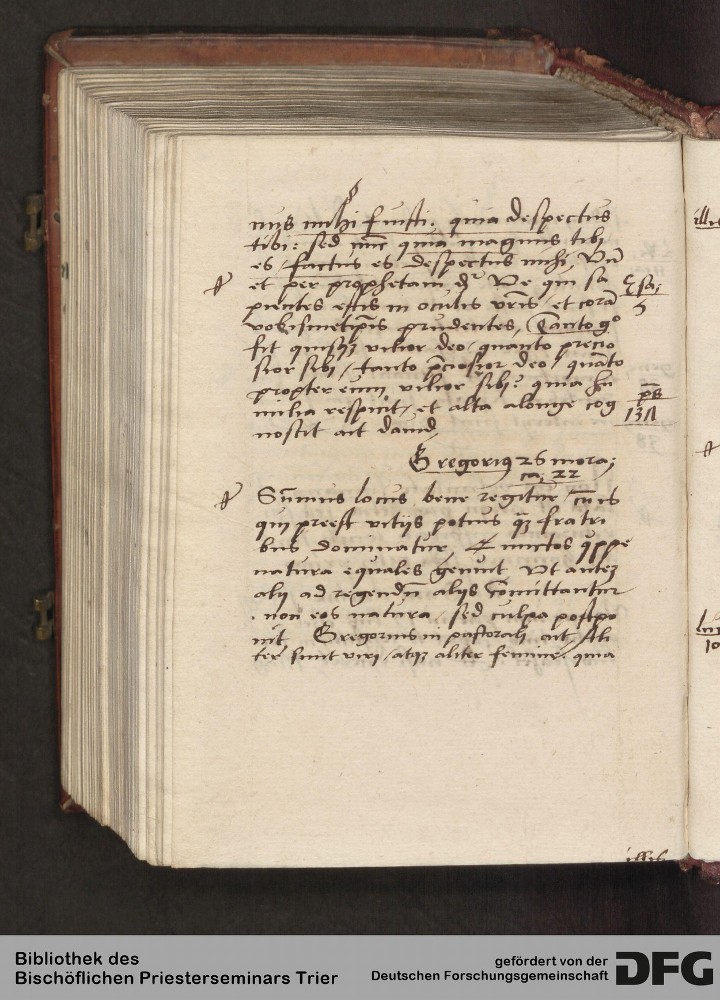 nus mihi fuisti. quia despectus
tibi: sed nūc quia magnus tibi
es / factus es despectus mihi, Vn̄
et per prophetam dr̄ Ve qui sa
Esai
5
pientes estis in oculis vr̄is et corā
vobismetip̄is prudentes, Tanto gͦ
fit quisq; vilior deo / quanto precio
sior sibi / tanto p̄ciosior deo / quāto
propter eum vilior sibi: quia hu
p̄s
milia respicit / et alta alonge cog
nostit ait dauid
Gregoriꝰ 26 mora;
ca; 22
Sūmus locus bene regitur / cū is
qui preest vitijs potius qͣ; fratri
bus dominatur,
natura equales genuit Vt autez
alij ad regendū alijs cōmittantur
. non eos natura / sed culpa postpo
nit, Gregorius in pastorali ait, Ali
ter sunt viri / atq; aliter femine. quia
illis
Bibliothek des
Bischöflichen Priesterseminars Trier
gefördert von der
Deutschen Forschungsgemeinschaft
DFG